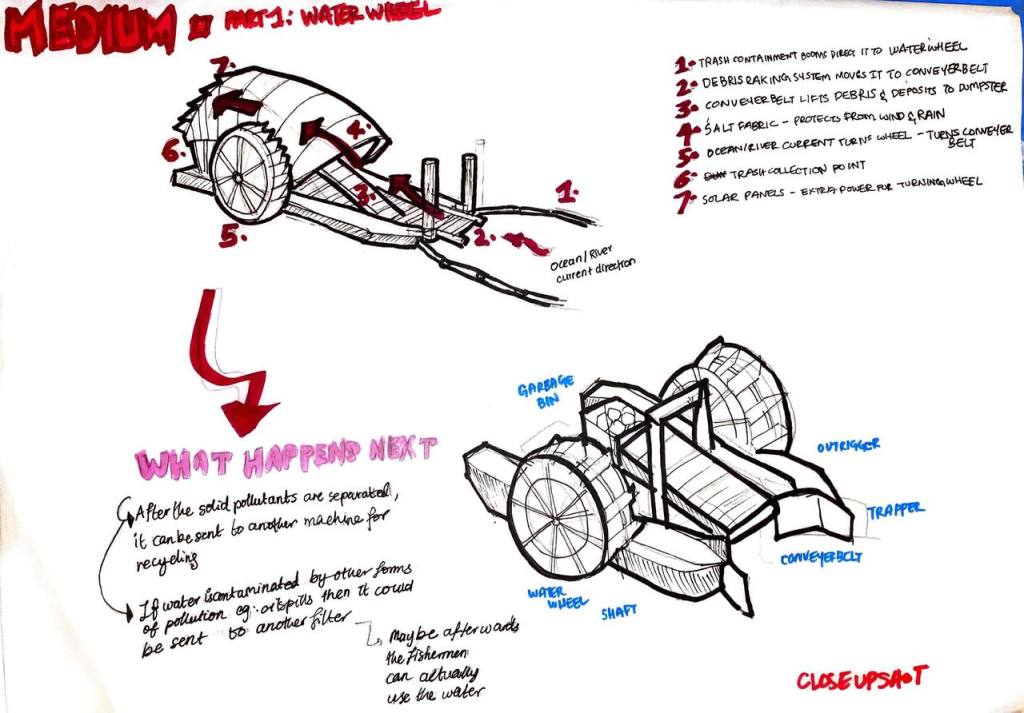 MEDIUM
PART 1: WATER WHEEL
1. TRASH CONTAINMENT BOOMS DIRECT IT TO WATERWHEEL
2. DEBRIS RAKING SYSTEM MOVES IT TO CONVEYERBELT
3. CONVEYERBELT LIFTS DEBRIS & DEPOSITS TO DUMPSTER
4. SALT FABRIC - PROTECTS FROM WIND & RAIN
5. OCEAN/RIVER CURRENT TURNS WHEEL - TURNS CONVEYER
BELT
6. TRASH COLLECTION POINT
7. SOLAR PANELS - EXTRA POWER FOR TURNING WHEEL
7.
4.
6.
3.
1.
5.
2.
Ocean/River
current direction
WHAT HAPPENS NEXT
After the solid pollutants are separated,
it can be sent to another machine for
recycling
If water is contaminated by other forms
of pollution eg: oil spills then it could
be sent to another filter
Maybe afterwards
the fishermen
can actually
use the water
GARBAGE
BIN
OUTRIGGER
TRAPPER
CONVEYERBELT
WATER
WHEEL
SHAFT
CLOSE UP SHOT